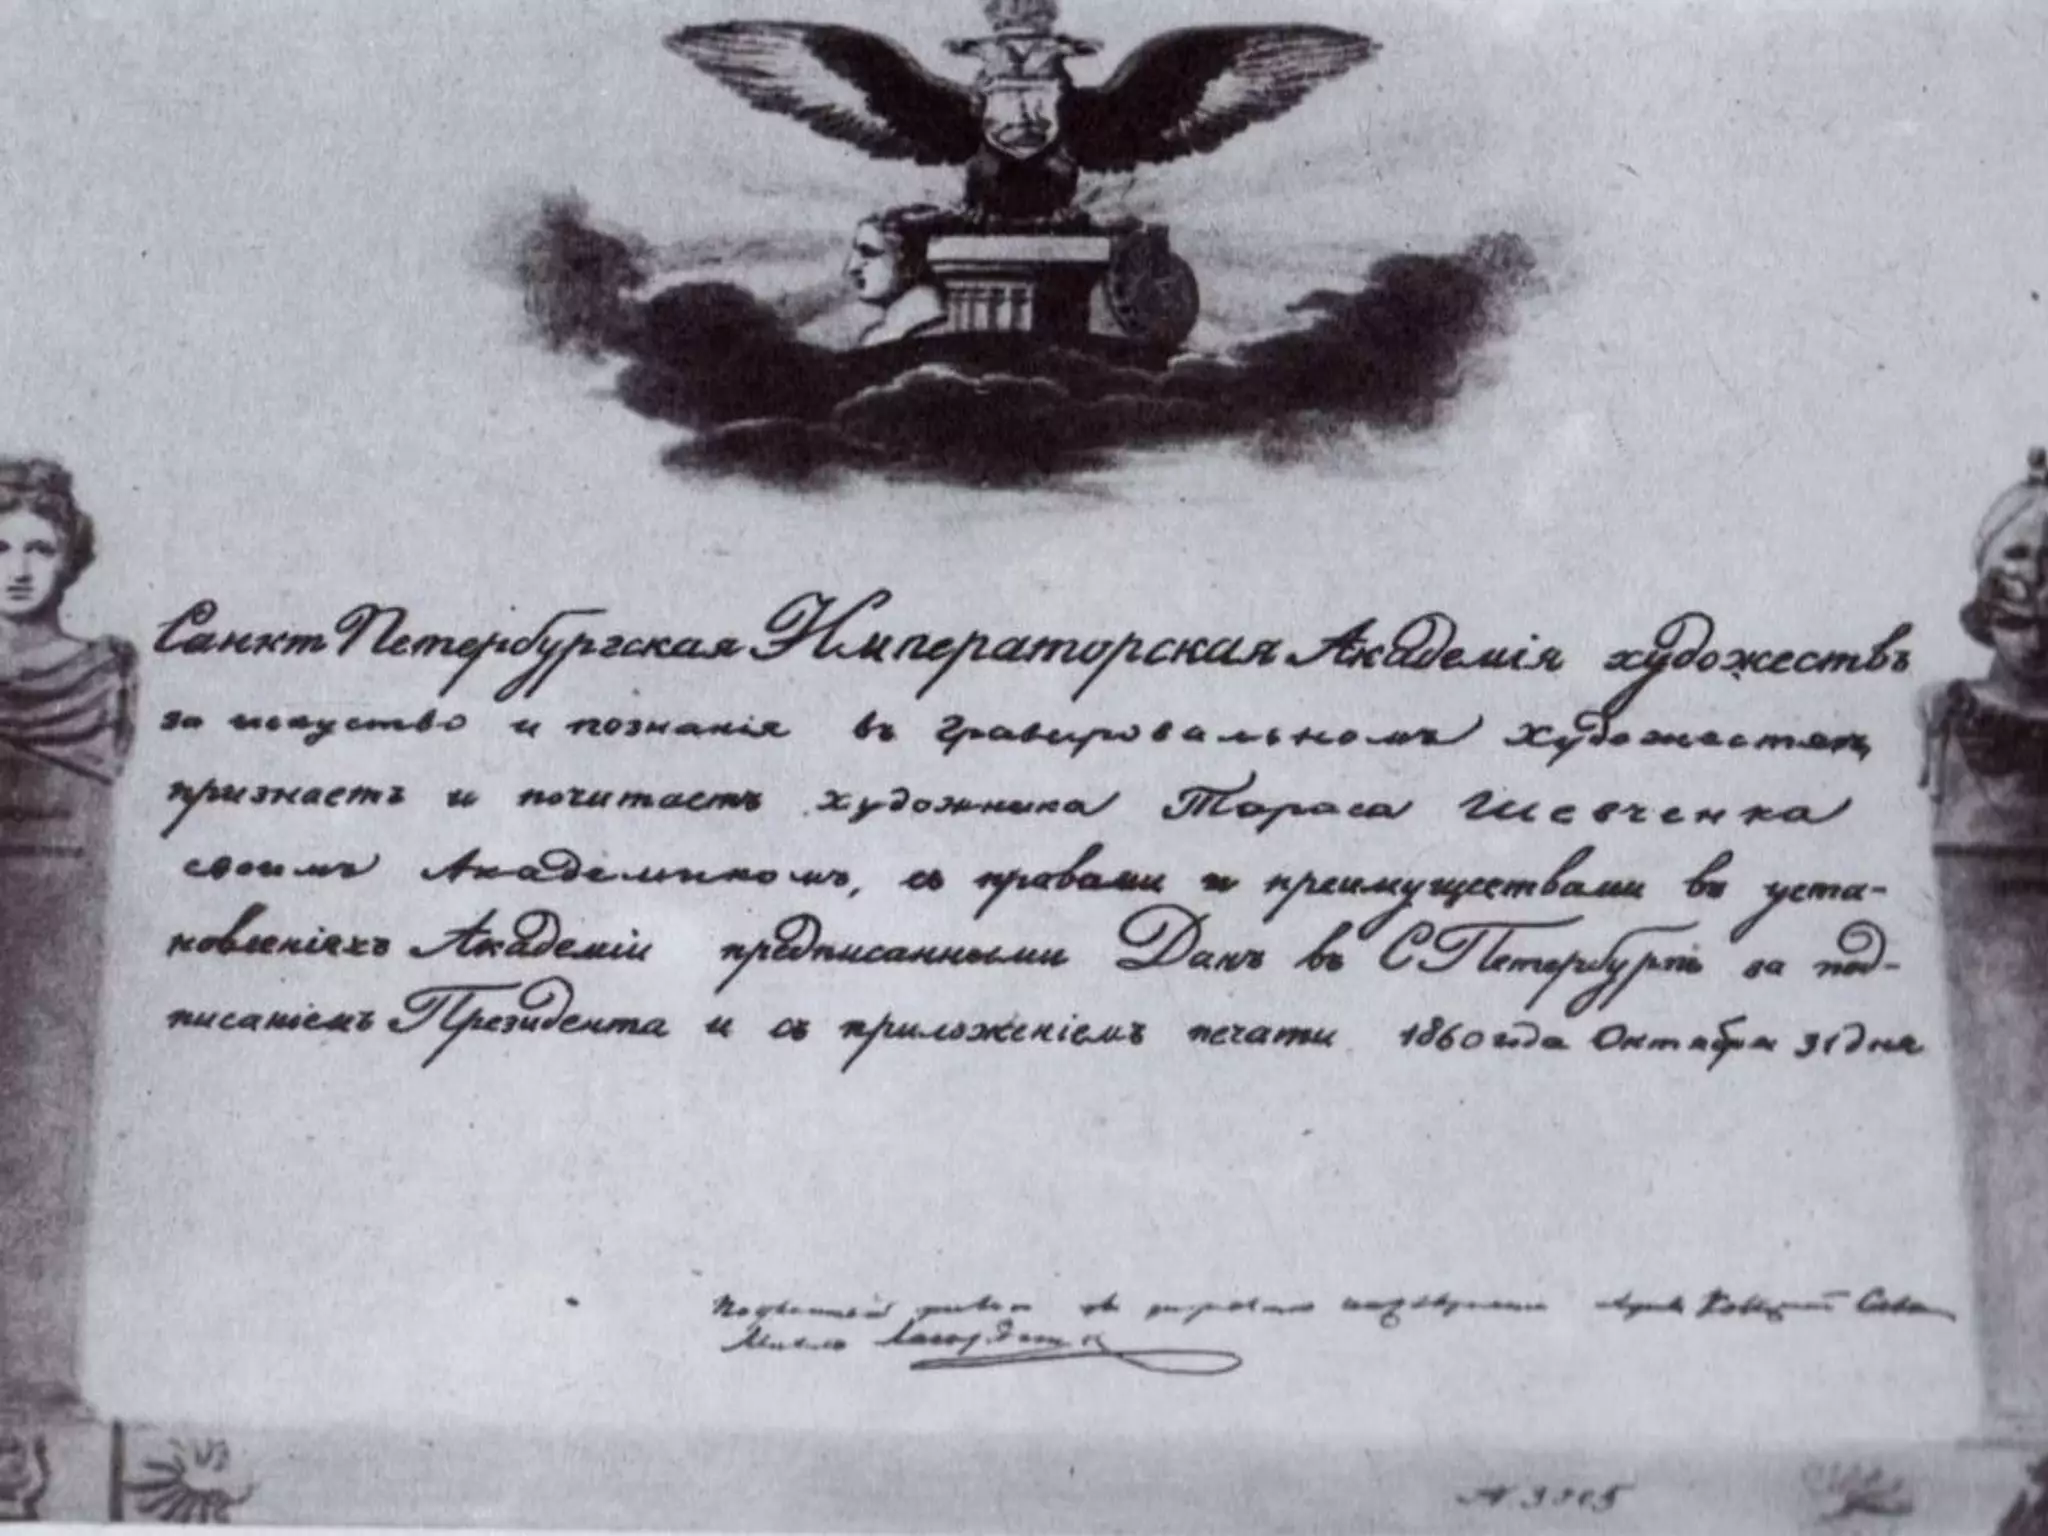 Санкт Петербургская Императорская Академія художествъ
за искуство и познанія въ гравировальномъ художествѣ,
признаетъ и почитаетъ художника Тараса Шевченка
своимъ Академикомъ, съ правами и преимуществами въ уста-
новленіяхъ Академіи предписанными Данъ въ С Петербургѣ за под-
писаніемъ Президента и съ приложеніемъ печати 1860 года Октября 31 дня